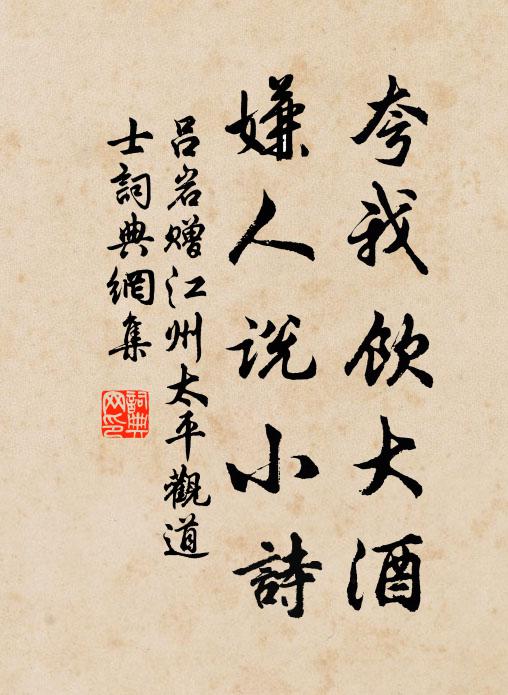 夸我飲大酒
嫌人说小詩
吕岩赠江州太平觀道
士詞典網集
詞典
网印